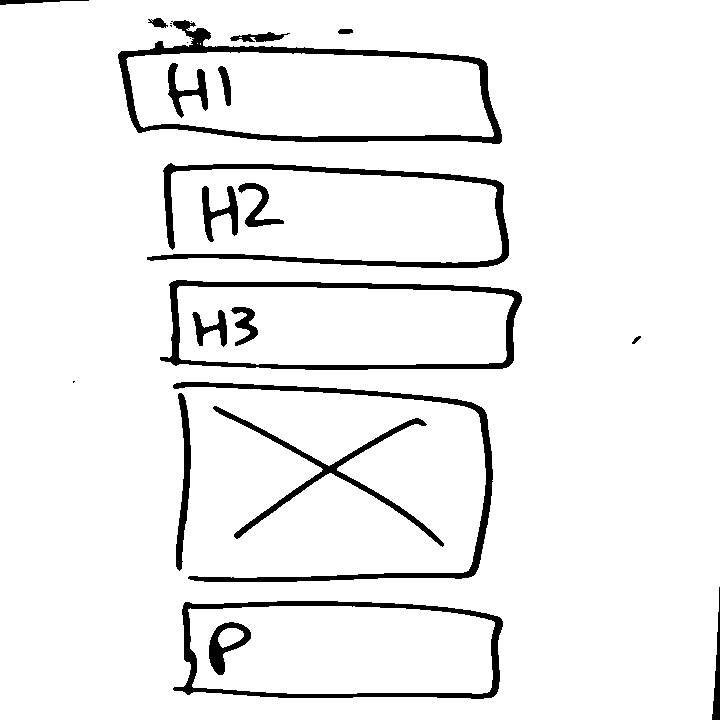 H1
H2
H3
P